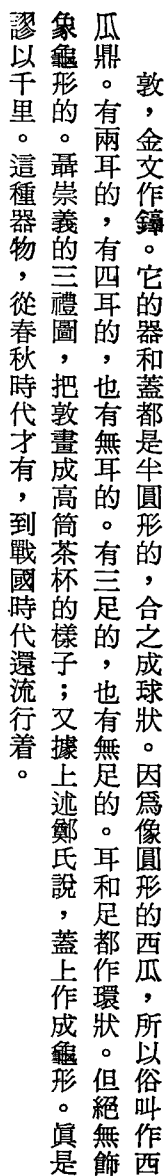 敦，金文作鐏。它的器和蓋都是半圓形的，合之成球狀。因爲像圓形的西瓜，所以俗叫作西
瓜鼎。有兩耳的，有四耳的，也有無耳的。有三足的，也有無足的。耳和足都作環狀。但絕無飾
象龜形的。聶崇義的三禮圖，把敦畫成高筒茶杯的樣子；又據上述鄭氏說，蓋上作成龜形。眞是
謬以千里。這種器物，從春秋時代才有，到戰國時代還流行着。